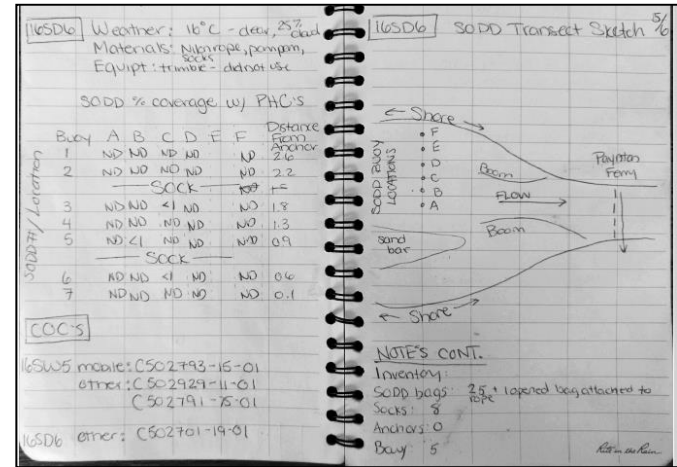 16SD6 Weather: 16°C - clear, 25% cloud
Materials: rope, pompom, socks
Equipt: trimble - did not use
SODD % coverage w/ PHC's
Buoy A B C D E F Distance From Anchor
SODD#/Location
1 ND ND ND ND ND 2.6
2 ND ND ND ND ND 2.2
SOCK
3 ND ND <1 ND ND 1.8
4 ND ND ND ND ND 1.3
5 ND <1 ND ND ND 0.9
SOCK
6 ND ND <1 ND ND 0.6
7 ND ND ND ND ND 0.1
COC's
16SW5 mobile: C502793-15-01
other: C502929-11-01
C502791-75-01
16SD6 other: C502701-19-01
16SD6 SODD Transect Sketch 5/6
← Shore →
SODD BUOY LOCATIONS
F
E
D
C
B
A
Boom
FLOW
Paynton Ferry
Boom
sand bar
← Shore →
NOTE'S CONT.
Inventory:
SODD bags: 25 + 1 opened bag attached to rope
Socks: 8
Anchors: 0
5
Rite in the Rain